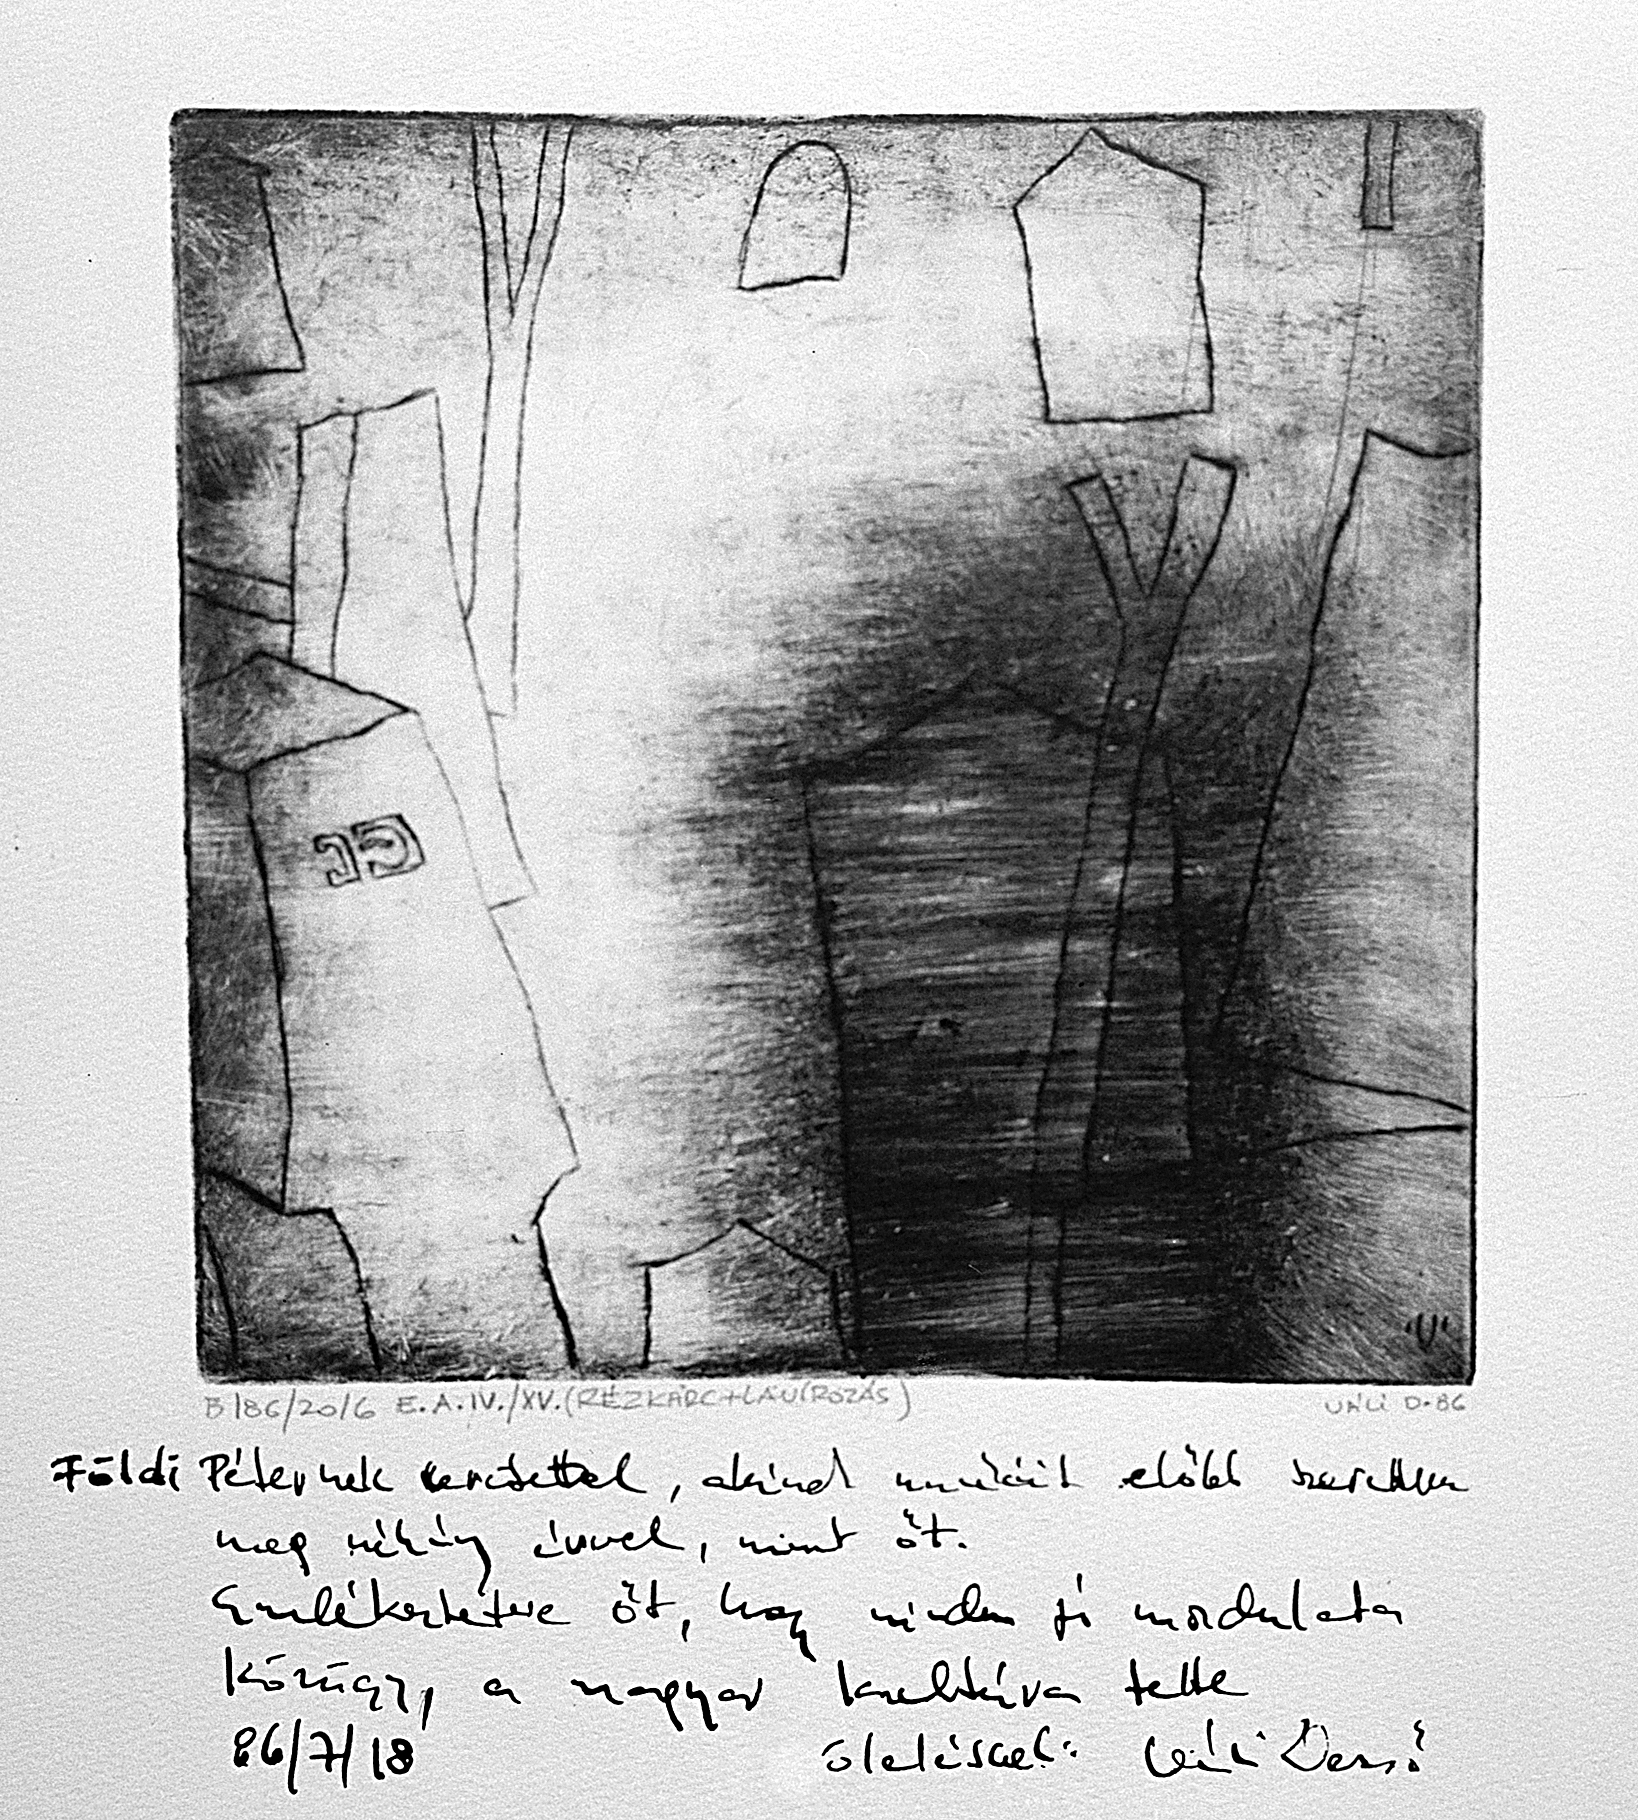 פנ
'V'
B/86/20/6 E.A.IV./XV. (RÉZKARC+LAVÍROZÁS) VÁLI D. 86
Földi Péternek szeretettel, akinek munkáit előbb szerettem
meg néhány évvel, mint őt.
Emlékeztetve őt, hogy minden jó mozdulata
közügy, a magyar kultúra tette
86/7/18 öleléssel: Váli Dezső